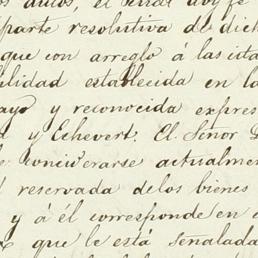 os autos, el
parte resolutiva de dich
que con arreglo á las esta
ilidad establecida en la
ayo y reconocida expres
a y Echevert. El Señor D
e considerarse actualmen
l reservada de los bienes
y á él corresponde en c
que le está señalada